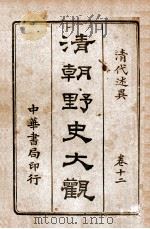 清代述異　卷十二
清朝野史大觀
中華書局印行
www.toutu.com